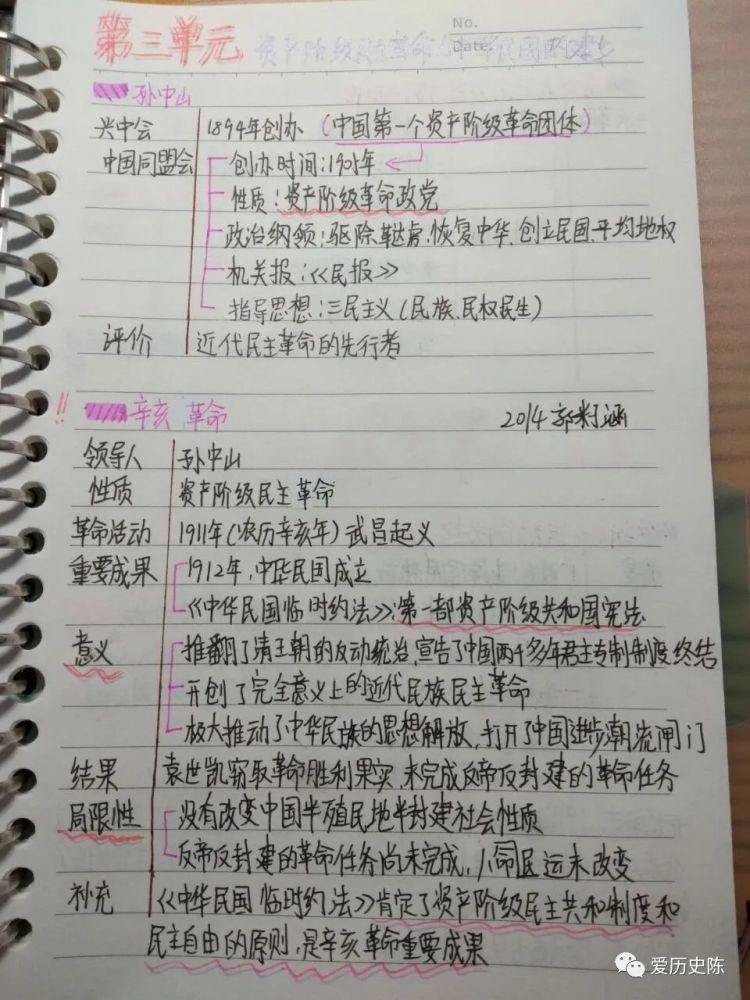 第三单元 资产阶级民主革命与中华民国的建立
No.
Date.
孙中山
兴中会 1894年创办(中国第一个资产阶级革命团体)
中国同盟会 创办时间:1905年
性质:资产阶级革命政党
政治纲领:驱除鞑虏、恢复中华、创立民国、平均地权
机关报:《民报》
指导思想:三民主义(民族、民权民生)
评价 近代民主革命的先行者
!! 辛亥革命 2014郭籽涵
领导人 孙中山
性质 资产阶级民主革命
革命活动 1911年(农历辛亥年)武昌起义
重要成果 1912年,中华民国成立
《中华民国临时约法》:第一部资产阶级共和国宪法
意义 推翻了清王朝的反动统治,宣告了中国两千多年君主专制制度终结
开创了完全意义上的近代民族民主革命
极大推动了中华民族的思想解放,打开了中国进步潮流闸门
结果 袁世凯窃取革命胜利果实,未完成反帝反封建的革命任务
局限性 没有改变中国半殖民地半封建社会性质
反帝反封建的革命任务尚未完成,人命运未改变
补充 《中华民国临时约法》肯定了资产阶级民主共和制度和
民主自由的原则,是辛亥革命重要成果
爱历史陈